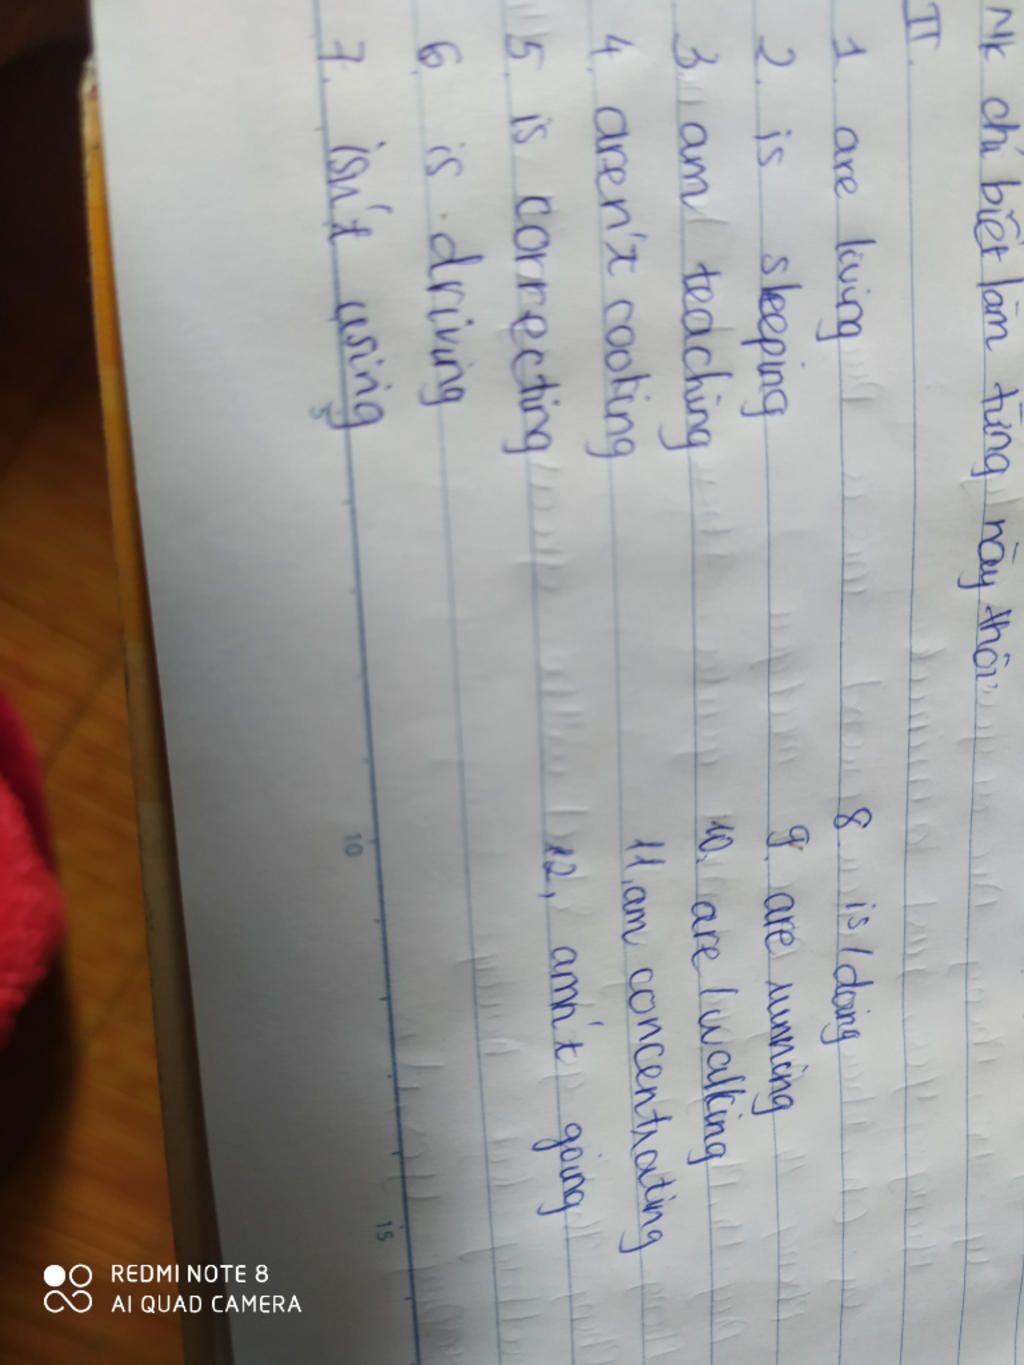 Mk chỉ biết làm từng này thôi
II.
1. are living
2. is sleeping
3. am teaching
4. aren't cooking
5. is correcting
6. is driving
7. isn't using
8. is / doing
9. are running
10. are / walking
11. am concentrating
12, amn't going
5
10
15
REDMI NOTE 8
AI QUAD CAMERA